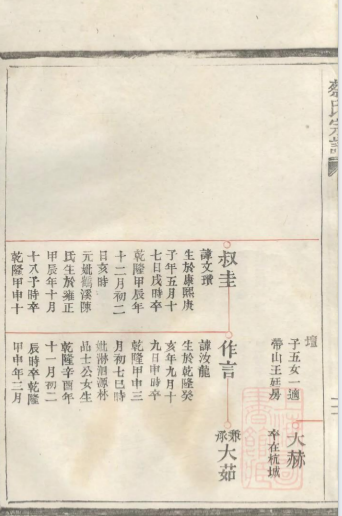 氏宗譜
壇
子五女一適
帶山王廷房
大赫
卒在杭城
叔圭
諱文
生於康熙庚
子年五月十
七日戌時卒
乾隆甲辰年
十二月初二
日亥時
元妣鸛溪陳
氏生於雍正
甲辰年十月
十八子時卒
乾隆甲申十
作言
諱汝龍
生於乾隆癸
亥年九月十
九日申時卒
乾隆甲申三
月初七巳時
妣源林
品士公女生
乾隆辛酉年
十一月初二
辰時卒乾隆
甲申年三月
兼承
大茹